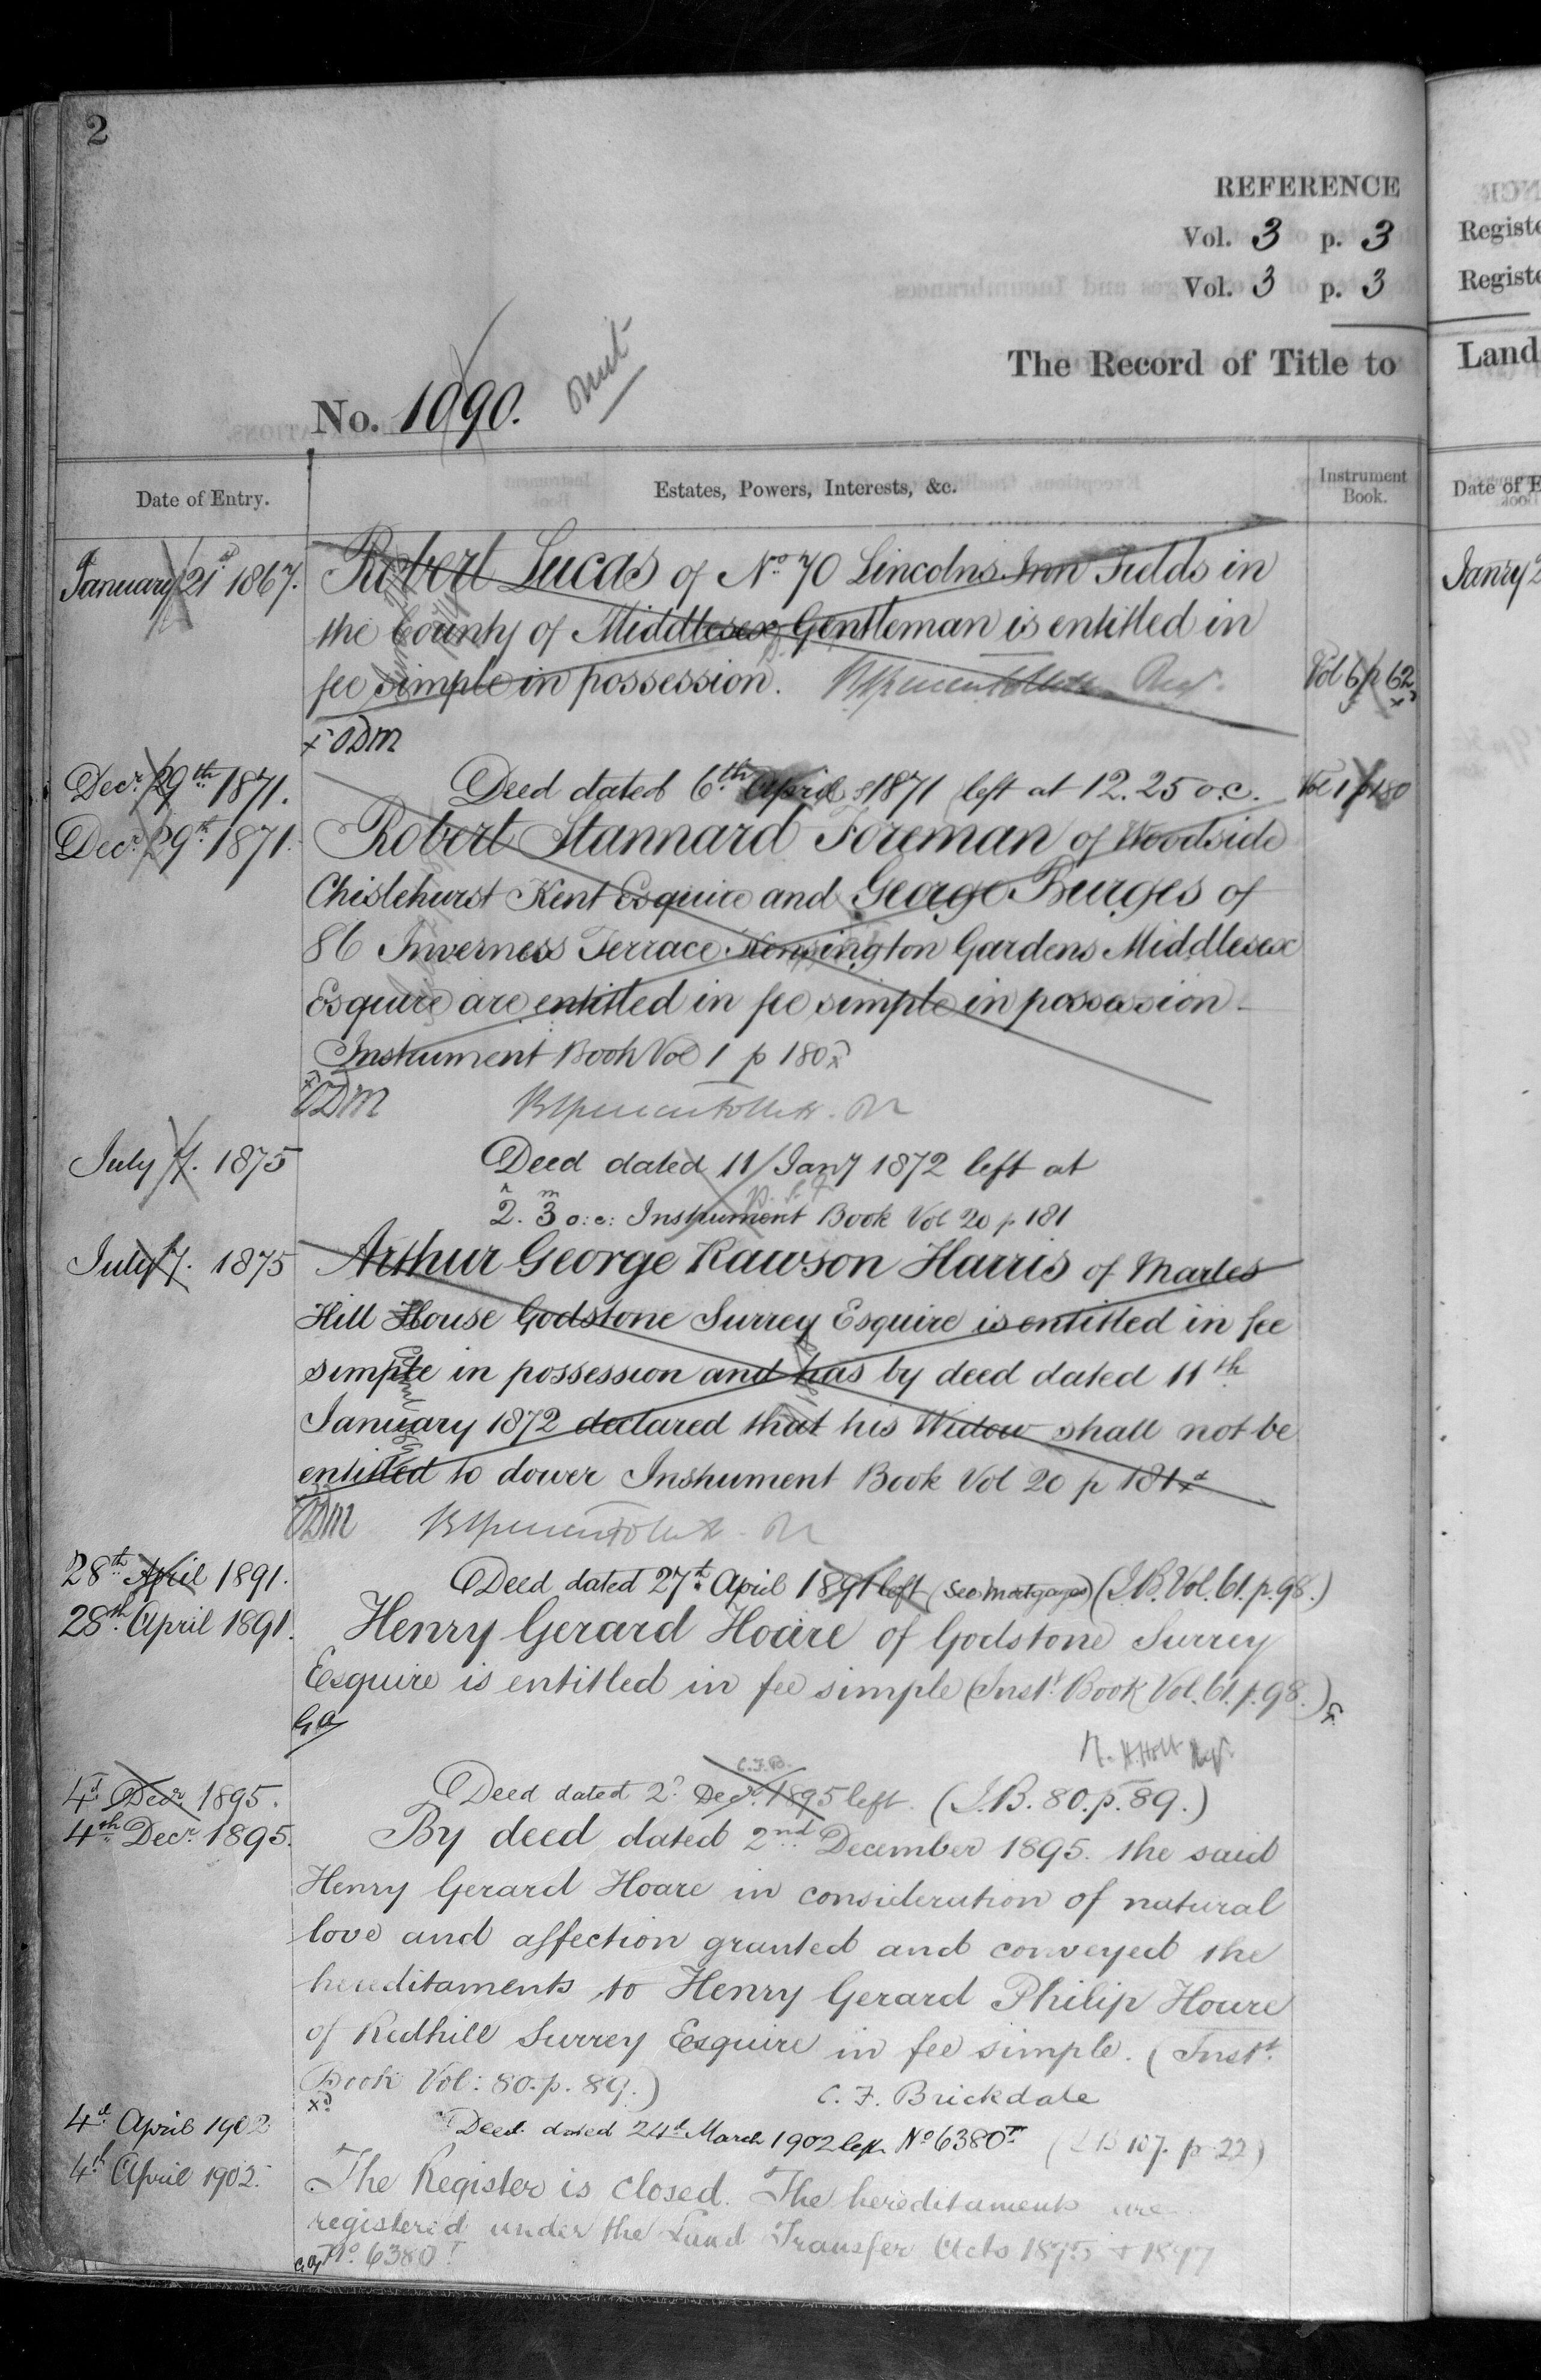 2
REFERENCE
Vol. 3 p. 3
Vol. 3 p. 3
The Record of Title to
No. 1090.
omit
Date of Entry.
Estates, Powers, Interests, &c.
Instrument Book.
January 21st 1867.
Robert Lucas of No. 70 Lincolns Inn Fields in
the County of Middlesex Gentleman is entitled in
fee simple in possession.
Vol 6 p 62
ODM
Decr. 29th 1871.
Deed dated 6th April 1871 left at 12.25 o.c.
Vol 1 p 180
Decr. 29th 1871.
Robert Stannard Foreman of Woodside
Chislehurst Kent Esquire and George Burges of
86 Inverness Terrace Kensington Gardens Middlesex
Esquire are entitled in fee simple in possession
Instrument Book Vol 1 p 180
ODM
July 7. 1875
Deed dated 11 Jany 1872 left at
2.h 3m o:c: Instrument Book Vol 20 p 181
July 7. 1875
Arthur George Rawson Harris of Marles
Hill House Godstone Surrey Esquire is entitled in fee
simple in possession and has by deed dated 11th
January 1872 declared that his Widow shall not be
entitled to dower Instrument Book Vol 20 p 181
ODM
28th April 1891.
Deed dated 27th April 1891 left (see Mortgages) (I.B. Vol. 61. p. 98.)
28th April 1891.
Henry Gerard Hoare of Godstone Surrey
Esquire is entitled in fee simple (Inst. Book Vol. 61. p. 98.)
GA
R. H. Holt Regr.
4th Decr. 1895.
C.F.B.
Deed dated 2d Decr. 1895 left. (I.B. 80. p. 89.)
4th Decr. 1895.
By deed dated 2nd December 1895. the said
Henry Gerard Hoare in consideration of natural
love and affection granted and conveyed the
hereditaments to Henry Gerard Philip Hoare
of Redhill Surrey Esquire in fee simple. (Instt.
Book Vol: 80. p. 89.)
C. F. Brickdale
4th April 1902
Deed dated 24th March 1902 left No 6380T (I B 107. p 22)
4th April 1902.
The Register is closed. The hereditaments are
registered under the Land Transfer Acts 1875 & 1897
No. 6380T
Registe
Registe
Land
Date of E
Janry 2